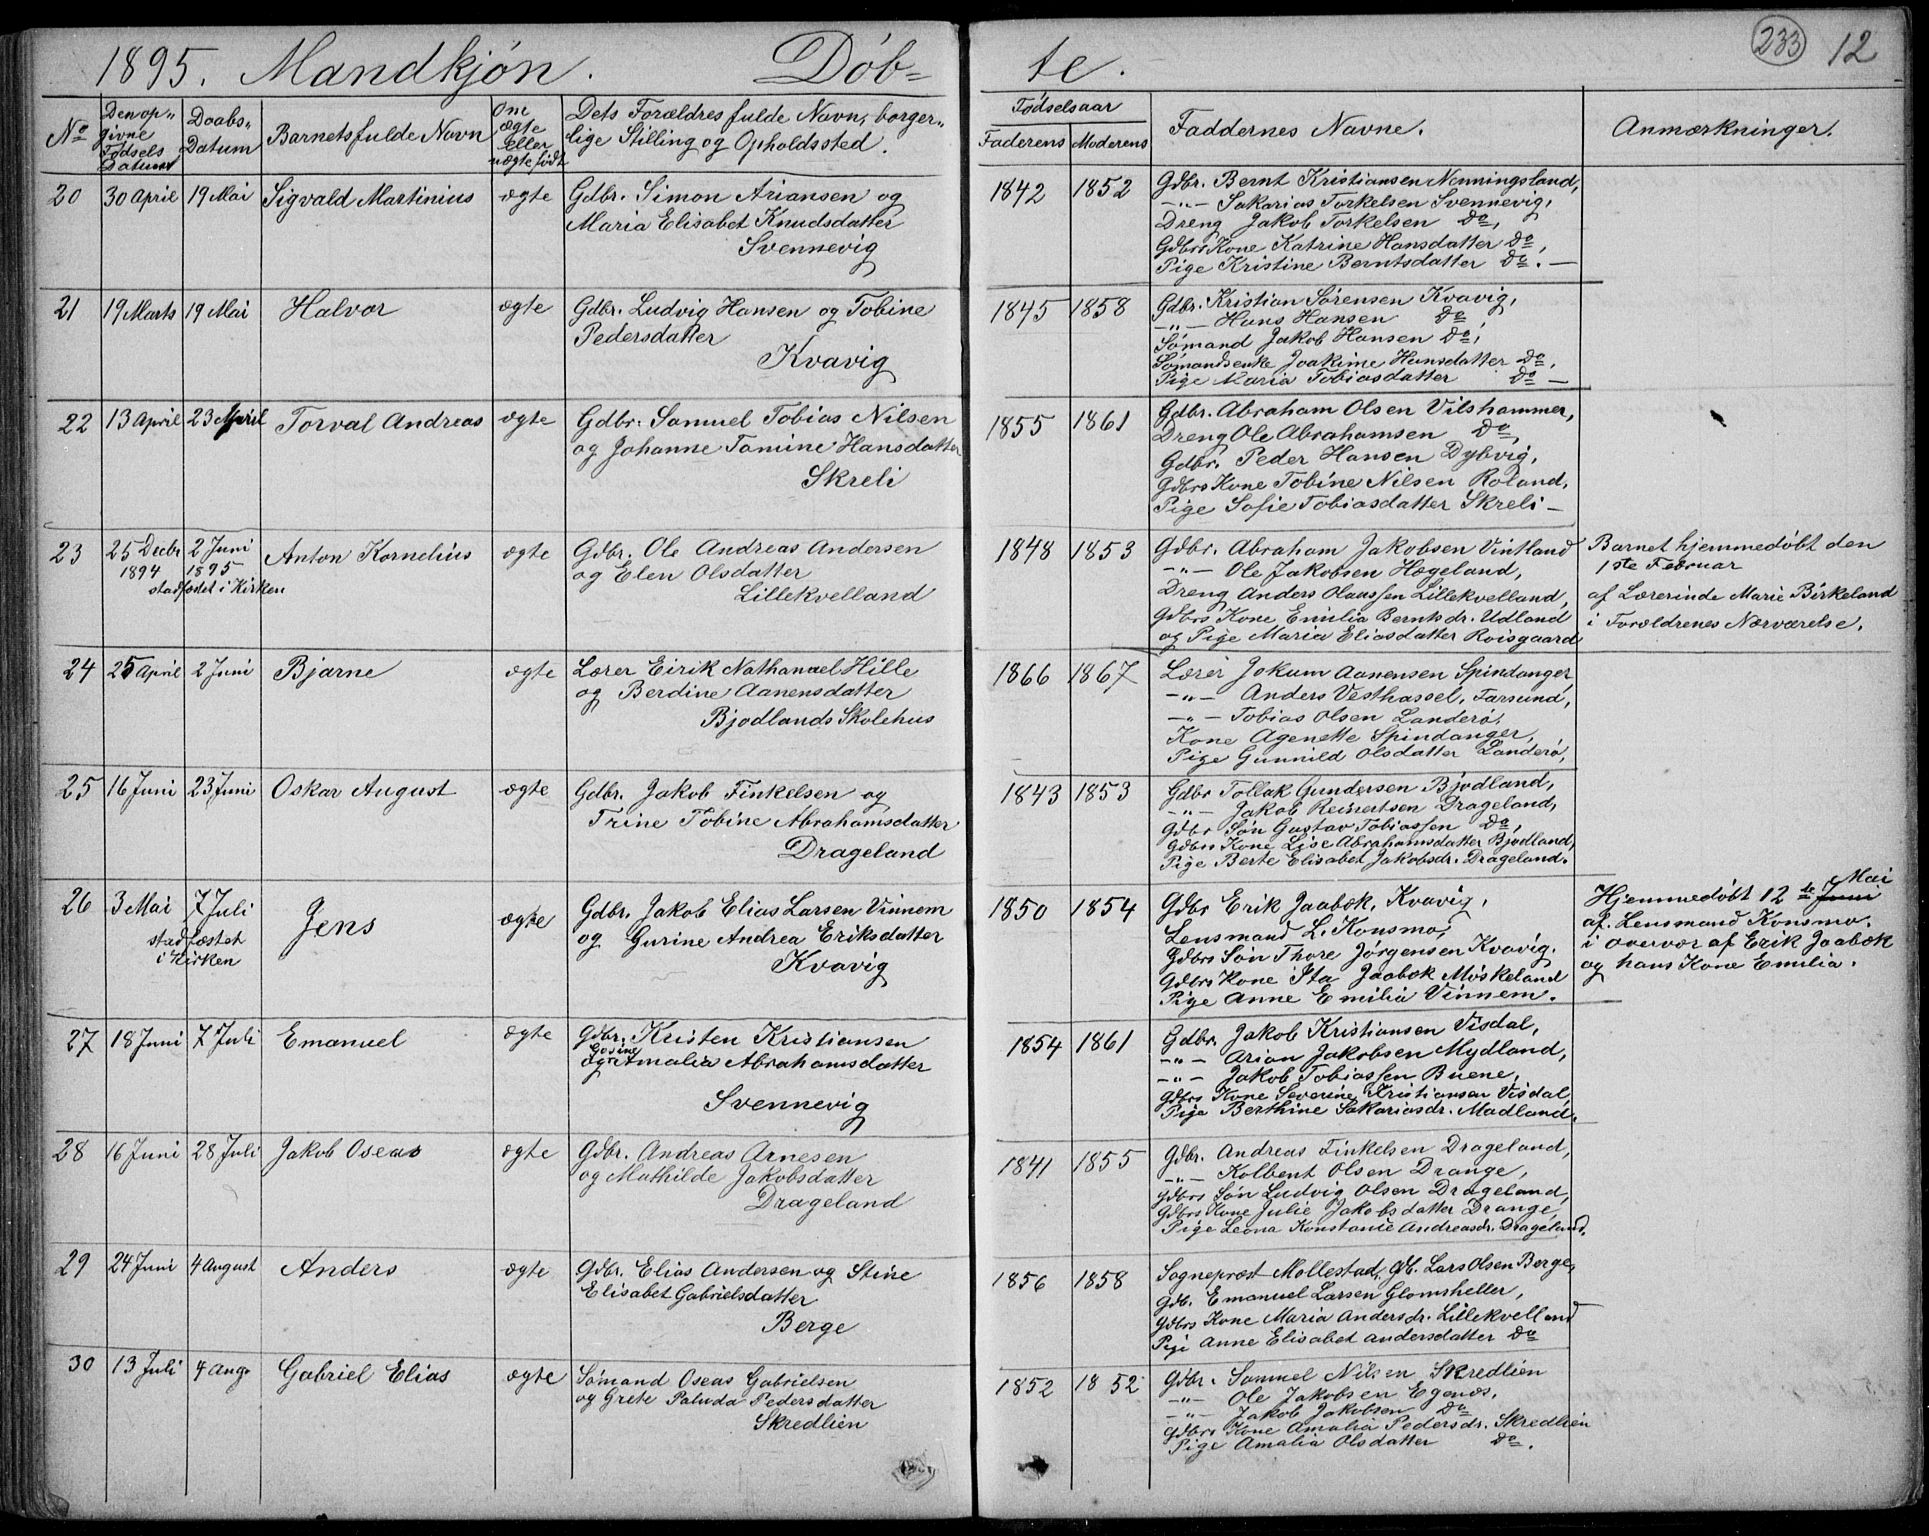 1895. Mandkjön. Döb=
te. 233 12
No
Den op„
givne
Fødsels
Datum
Daabs„
Datum
Barnets fulde Navn
Om
ægte
eller
uægte født
Dets Forældres fulde Navn, borger„
lige Stilling og Opholdssted.
Fødselsaar
Faderens Moderens
Faddernes Navne.
Anmærkninger.
20 30 April 19 Mai Sigvald Martinius ægte
Gdbr. Simon Ariansen og
Maria Elisabet Knudsdatter
Svennevig
1842 1852
Gdbr. Bernt Kristiansen Nenningsland,
-„- Sakarias Torkelsen Svennevig,
Dreng Jakob Torkelsen Do,
Gdbrs Kone Katrine Hansdatter Do,
Pige Kristine Berntsdatter Do. —
21 19 Marts 19 Mai Halvor ægte
Gdbr. Ludvig Hansen og Tobine
Pedersdatter
Kvavig
1845 1858
Gdbr. Kristian Sørensen Kvavig,
-„- Hans Hansen Do,
Sømand Jakob Hansen Do,
Sømandsenke Joakime Hansdatter Do,
Pige Maria Tobiasdatter Do —
22 13 April 23 April Torval Andreas ægte
Gdbr. Samuel Tobias Nilsen
og Johanne Tomine Hansdatter
Skreli
1855 1861
Gdbr. Abraham Olsen Vilshammer,
Dreng Ole Abrahamsen Do,
Gdbr. Peder Hansen Dybvig,
Gdbrs Kone Tobine Nilsen Roland,
Pige Sofie Tobiasdatter Skreli —
23 25 Decbr 2 Juni Anton Kornelius ægte
1894 1895
stadfæstet i Kirken
Gdbr. Ole Andreas Andersen
og Elen Olsdatter
Lillekvelland
1848 1853
Gdbr. Abraham Jakobsen Vintland
-„- Ole Jakobsen Hægeland,
Dreng Anders Olaussen Lillekvelland,
Gdbrs Kone Emilia Berntsdr. Udland
og Pige Maria Eliasdatter Roisgaard
Barnet hjemmedøbt den
1ste Februar
af Lærerinde Marie Birkeland
i Forældrenes Nærværelse.
24 25 April 2 Juni Bjarne ægte
Lærer Eirik Nathanael Hille
og Berdine Aanensdatter
Bjodlands Skolehus
1866 1867
Lærer Jokum Aanensen Spindanger
-„- Anders Vesthassel, Farsund,
-„- Tobias Olsen Landerø,
Kone Agenette Spindanger,
Pige Gunnild Olsdatter Landerø,
25 16 Juni 23 Juni Oskar August ægte
Gdbr. Jakob Finkelsen og
Trine Tobine Abrahamsdatter
Drageland
1843 1853
Gdbr Tollak Gundersen Bjodland,
-„- Jakob Reinertsen Drageland,
Gdbr Søn Gustav Tobiassen Do,
Gdbrs Kone Lise Abrahamsdatter Bjodland,
Pige Berte Elisabet Jakobsdr. Drageland.
26 3 Mai 7 Juli Jens ægte
stadfæstet
i Kirken
Gdbr. Jakob Elias Larsen Vinnem
og Gurine Andrea Eriksdatter
Kvavig
1850 1854
Gdbr Erik Jaabæk, Kvavig,
Lensmand L. Konsmo,
Gdbrs Søn Thore Jørgensen Kvavig.
Gdbrs Kone Ita Jaabæk Møskeland
Pige Anne Emilia Vinnem.
Mai
Hjemmedøbt 12te Juni
af Lensmand Konsmo.
i overvær af Erik Jaabæk
og hans Kone Emilia.
27 18 Juni 7 Juli Emanuel ægte
Gdbr. Kristen Kristiansen
Gosine
og Amalia Abrahamsdatter
Svennevig
1854 1861
Gdbr. Jakob Kristiansen Visdal,
-„- Arian Jakobsen Mydland,
-„- Jakob Tobiassen Buene,
Gdbrs Kone Severine Kristiansen Visdal,
Pige Berthine Sakariasdr. Madland.
28 16 Juni 28 Juli Jakob Oseas ægte
Gdbr. Andreas Arnesen
og Mathilde Jakobsdatter
Drageland
1841 1855
Gdbr. Andreas Finkelsen Drageland,
-„- Kolbent Olsen Drange,
Gdbrs Søn Ludvig Olsen Drageland,
Gdbrs Kone Julie Jakobsdatter Drange,
Pige Leona Konstanie Andreasdr. Drageland.
29 24 Juni 4 August Anders ægte
Gdbr. Elias Andersen og Stine
Elisabet Gabrielsdatter
Berge
1856 1858
Sognepræst Mollestad, Gb. Lars Olsen Berge,
Gdb. Emanuel Larsen Glomsheller,
Gdbrs Kone Maria Andersdr. Lillekvelland
Pige Anne Elisabet Andersdatter Do
30 13 Juli 4 Aug. Gabriel Elias ægte
Sømand Oseas Gabrielsen
og Grete Paluda Pedersdatter
Skredlien
1852 1852
Gdbr. Samuel Nilsen Skredlien
-„- Ole Jakobsen Egenæs,
-„- Jakob Jakobsen Do
Gdbrs Kone Amalia Pedersdr. Skredlien
Pige Amalia Olsdatter Do.